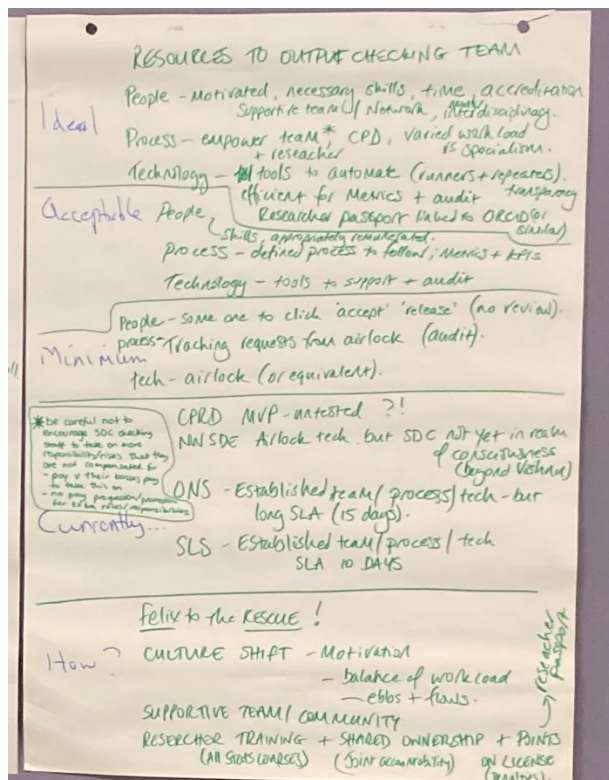 RESOURCES TO OUTPUT CHECKING TEAM
Ideal
People - Motivated, necessary skills, time, accreditation
Supportive team / Network, interdisciplinary.
Process - empower team*, CPD, varied work load
+ reseacher vs specialism.
Technology - tools to automate (runners + repeaters).
efficient for Metrics + audit transparency
Researcher passport linked to ORCID (or similar)
Acceptable
People
skills, appropriately remunerated.
Process - defined process to follow, Metrics + KPIs
Technology - tools to support + audit
Minimum
People - some one to click 'accept' 'release' (no review).
process - Tracking requests from airlock (audit).
tech - airlock (or equivalent).
*be careful not to
encourage SDC checking
staff to take on more
responsibility/risks that they
are not compensated for
- pay v their bosses pay
to take this on
- no pay progression/
for extra risks/responsibilities
Currently...
CPRD MVP - untested ?!
NW SDE Airlock tech, but SDC not yet in realm
of consciousness
(beyond Vishnu)
ONS - Established team / process / tech - but
long SLA (15 days).
SLS - Established team / process / tech
SLA 10 DAYS
Felix to the RESCUE !
How?
CULTURE SHIFT - Motivation
- balance of work load
- ebbs + flows.
SUPPORTIVE TEAM / COMMUNITY
RESEARCHER TRAINING + SHARED OWNERSHIP + POINTS
(All Stats Courses) (Joint accountability) ON LICENSE
reseacher
passport